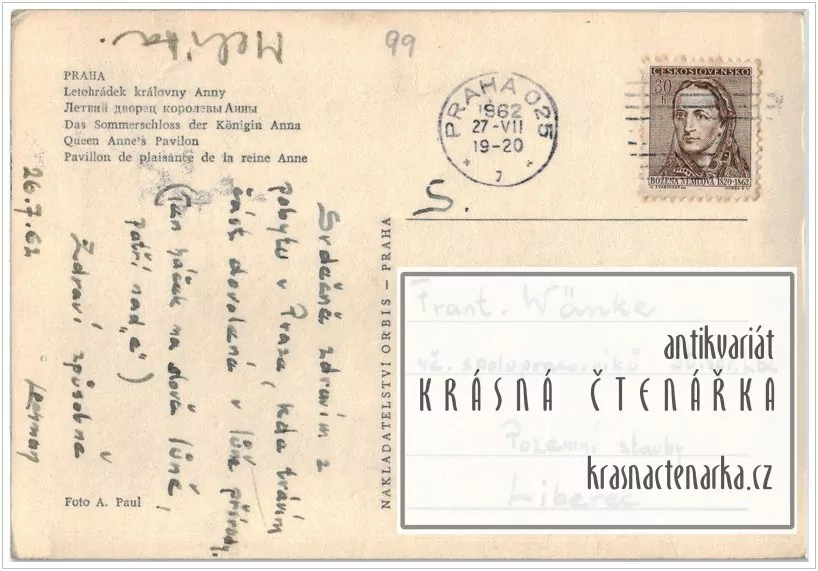 Meliška.
99
PRAHA
Letohrádek královny Anny
Летний дворец королевы Анны
Das Sommerschloss der Königin Anna
Queen Anne's Pavilon
Pavillon de plaisance de la reine Anne
26.7.62
Srdečně zdravím z
pobytu v Praze, kde trávím
část dovolené v lůně přírody.
(Ten háček na slově lůně,
patří nad „e")
Zdraví způsobně
Lehman
Foto A. Paul
NAKLADATELSTVÍ ORBIS – PRAHA
PRAHA 025
1962
27-VII
19-20
7
ČESKOSLOVENSKO
30
h
BOŽENA NĚMCOVÁ 1820-1862
S.
Frant. Wänke
vč. spolupracovníků
Pozemní stavby
Liberec
antikvariát
KRÁSNÁ ČTENÁŘKA
krasnactenarka.cz